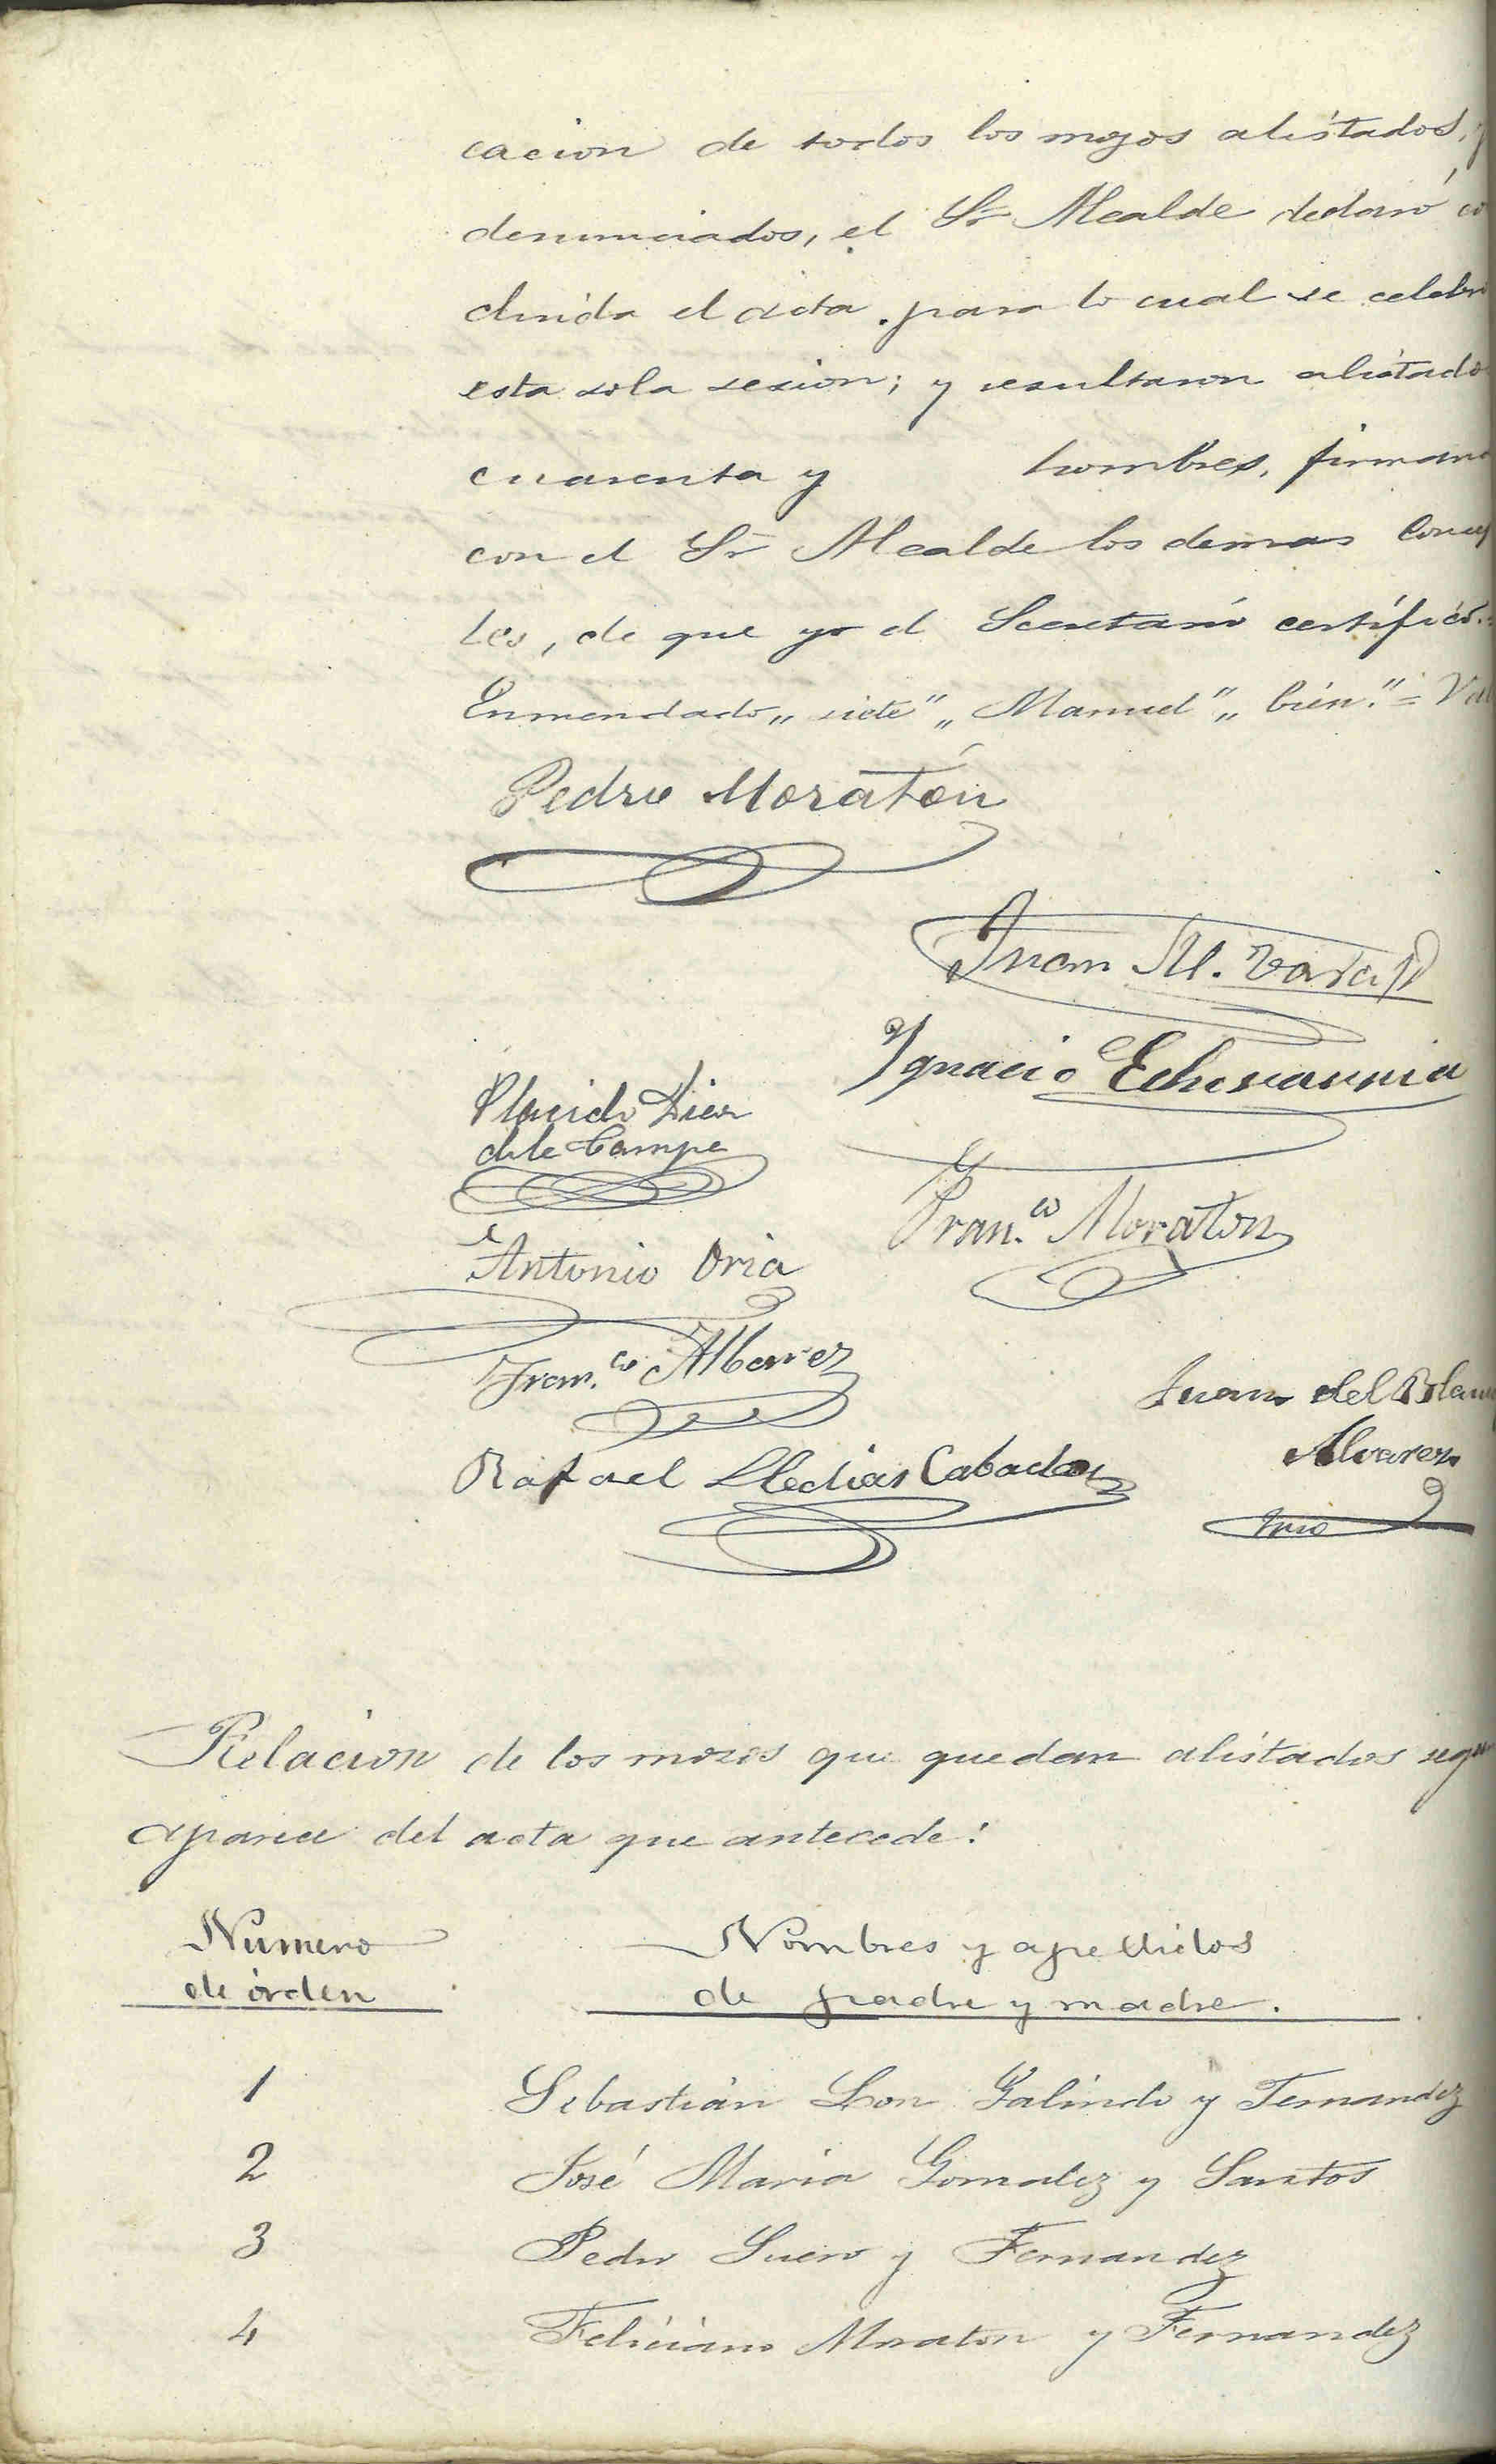 cacion de todos los mozos alistados, y
denunciados, el Sr Alcalde declaró co
cluida el acta para lo cual se celebr
esta sola sesion; y resultaron alistado
cuarenta y hombres, firman
con el Sr Alcalde los demas Conce
les, de que yo el Secretario certifico.=
Enmendado „siete" „Manuel" „bien."= Val
Pedro Moratón
Juan M. 
Ignacio Echevarria
Placido Dier
de la Campa
Fran.co Moraton
Antonio Oria
Fran.co Albarez
Juan del Blan
Alvarez
Rafael Lledias Cabada
Srio
Relacion de los mozos que quedan alistados segun
aparece del acta que antecede:
Número Nombres y apellidos
de órden de padre y madre.
1 Sebastián Galindo y Fernandez
2 José Maria Gomalez y Santos
3 Pedro Suero y Fernandez
4 Feliciano Moraton y Fernandez